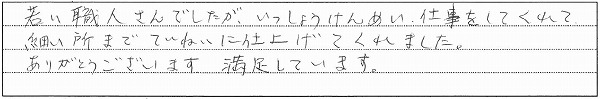 若い職人さんでしたが、いっしょうけんめい、仕事をしてくれて
細い所までていねいに仕上げてくれました。
ありがとうございます 満足しています。